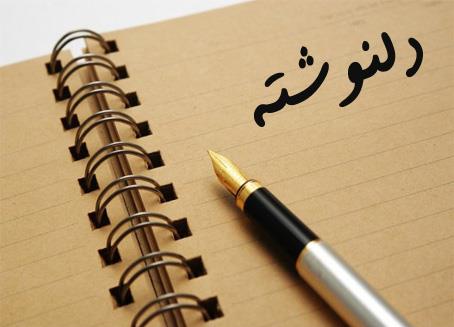 دلنوشته